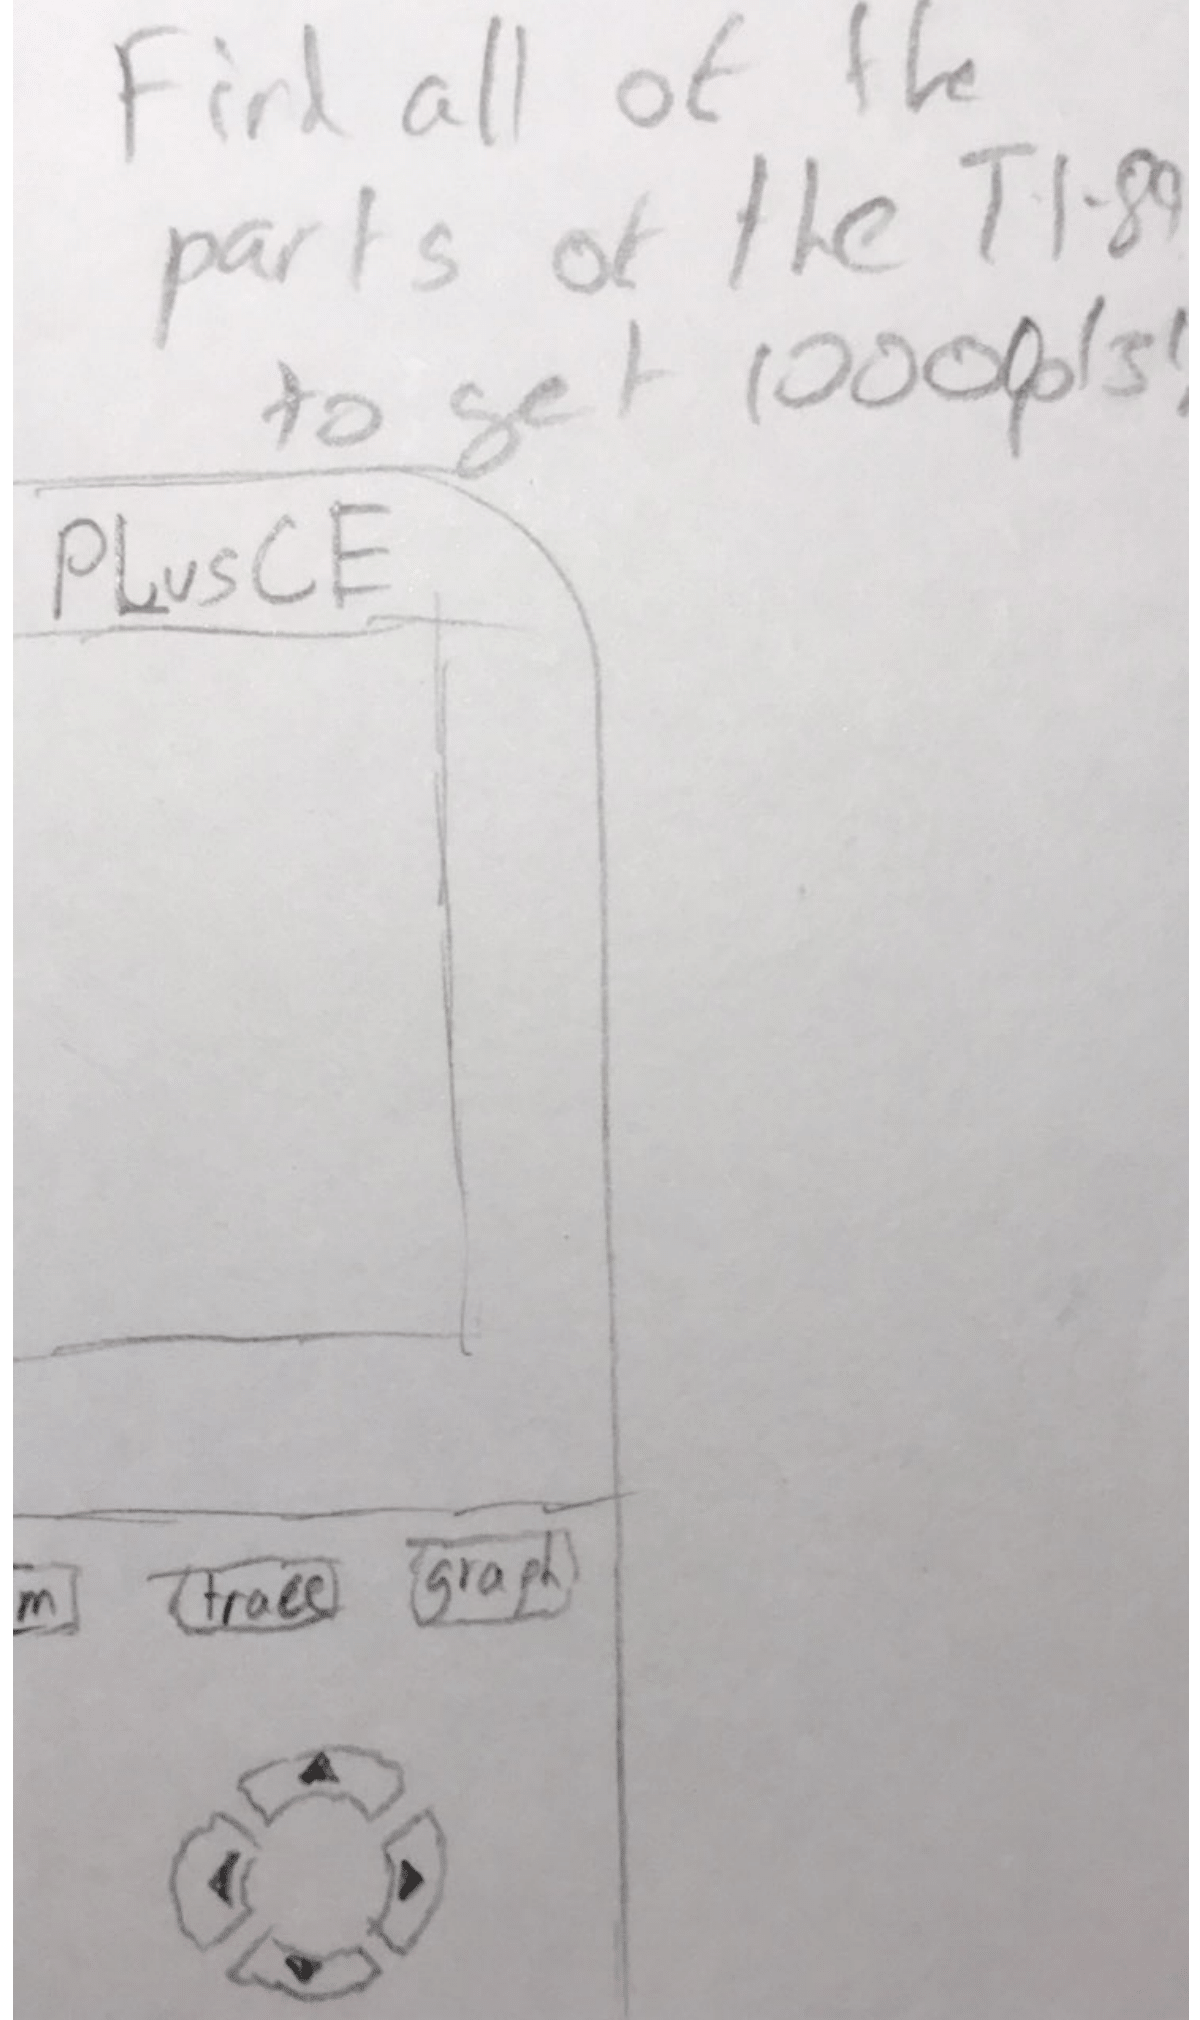 Find all of the
parts of the TI-89
to get 1000pts!
PLusCE
m trace graph